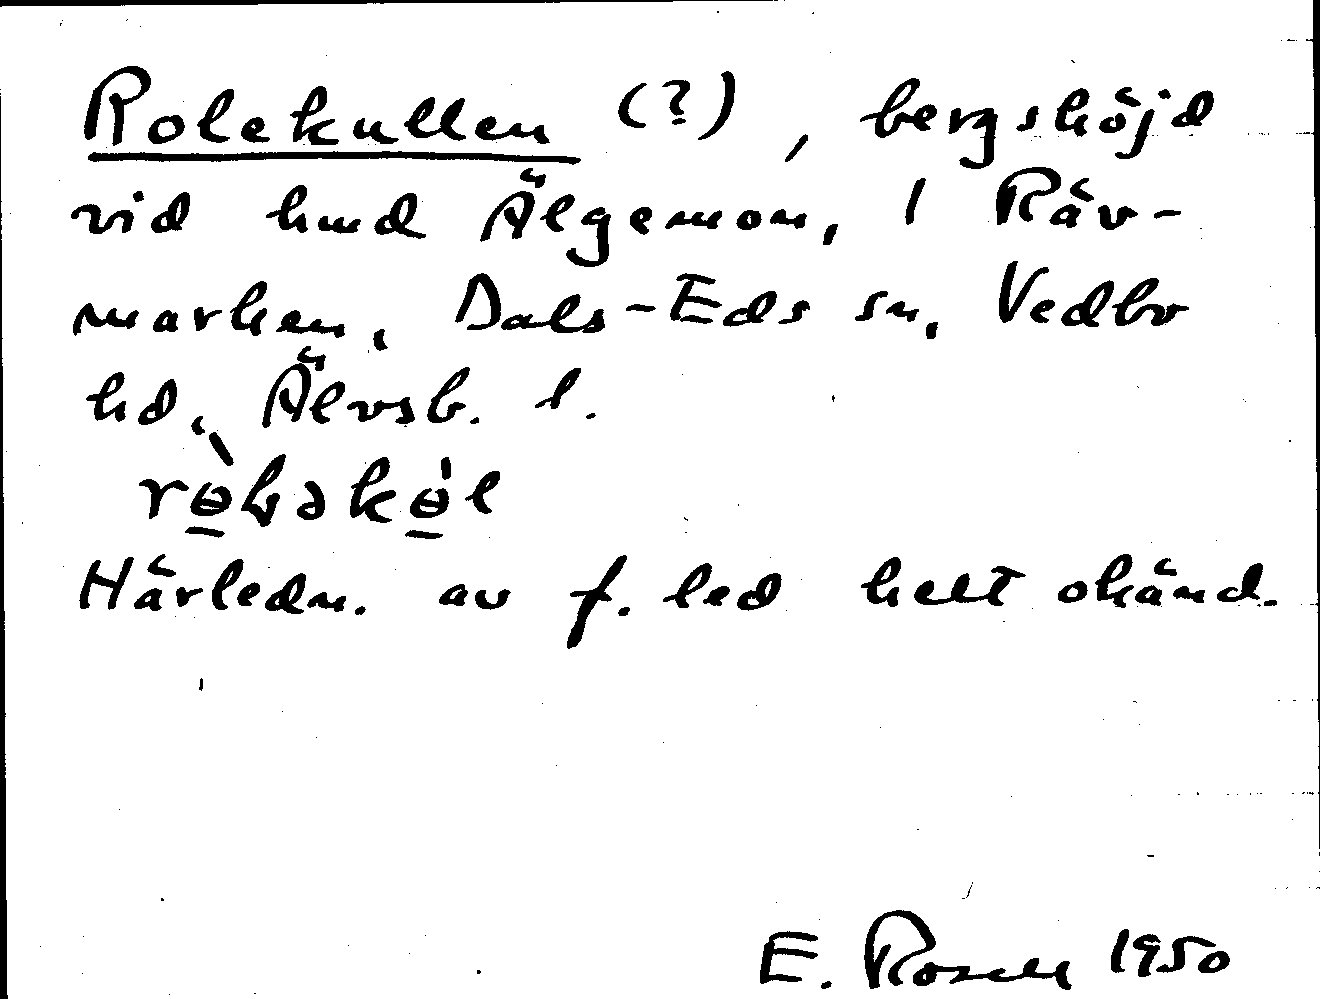 Rolekullen (?), bergshöjd
vid hmd Älgemon, 1 Räv-
marken, Dals-Eds sn, Vedbo
hd, Älvsb. l.
Härledn. av f. led helt okänd.
E. Rosell 1950